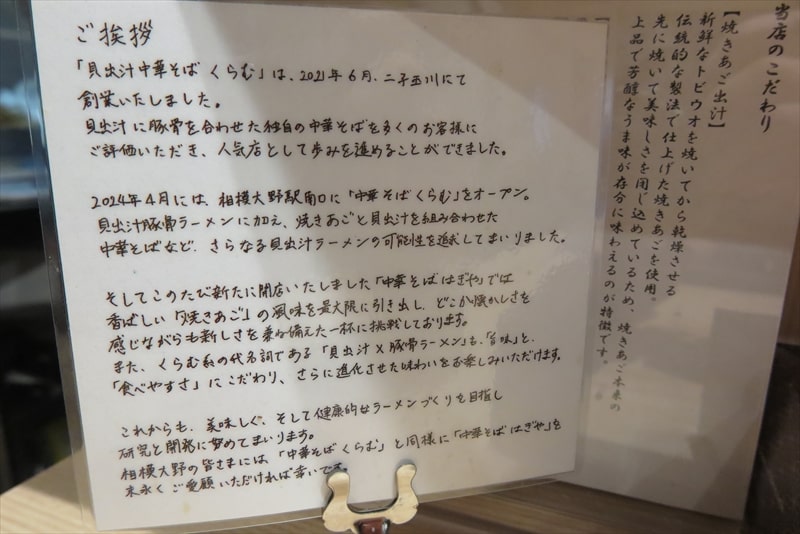 ご挨拶
「貝出汁中華そば くらむ」は、2021年6月、二子玉川にて
創業いたしました。
貝出汁に豚骨を合わせた独自の中華そばを多くのお客様に
ご評価いただき、人気店として歩みを進めることができました。
2024年4月には、相模大野駅南口に「中華そばくらむ」をオープン。
貝出汁豚骨ラーメンに加え、焼きあごと貝出汁を組み合わせた
中華そばなど、さらなる貝出汁ラーメンの可能性を追求してまいりました。
そしてこのたび新たに開店いたしました「中華そば はぎや」では
香ばしい「焼きあご」の風味を最大限に引き出し、どこか懐かしさを
感じながらも新しさを兼ね備えた一杯に挑戦しております。
また、くらむ系の代名詞である「貝出汁×豚骨ラーメン」も、「旨味」と、
「食べやすさ」にこだわり、さらに進化させた味わいをお楽しみいただけます。
これからも、美味しく、そして健康的なラーメンづくりを目指し
研究と開発に努めてまいります。
相模大野の皆さまには、「中華そば くらむ」と同様に「中華そば はぎや」を
末永くご愛顧いただければ幸いです。
当店のこだわり
【焼きあご出汁】
新鮮なトビウオを焼いてから乾燥させる
伝統的な製法で仕上げた焼きあごを使用。
先に焼いて美味しさを閉じ込めているため、焼きあご本来の
上品で芳醇なうま味が存分に味わえるのが特徴です。